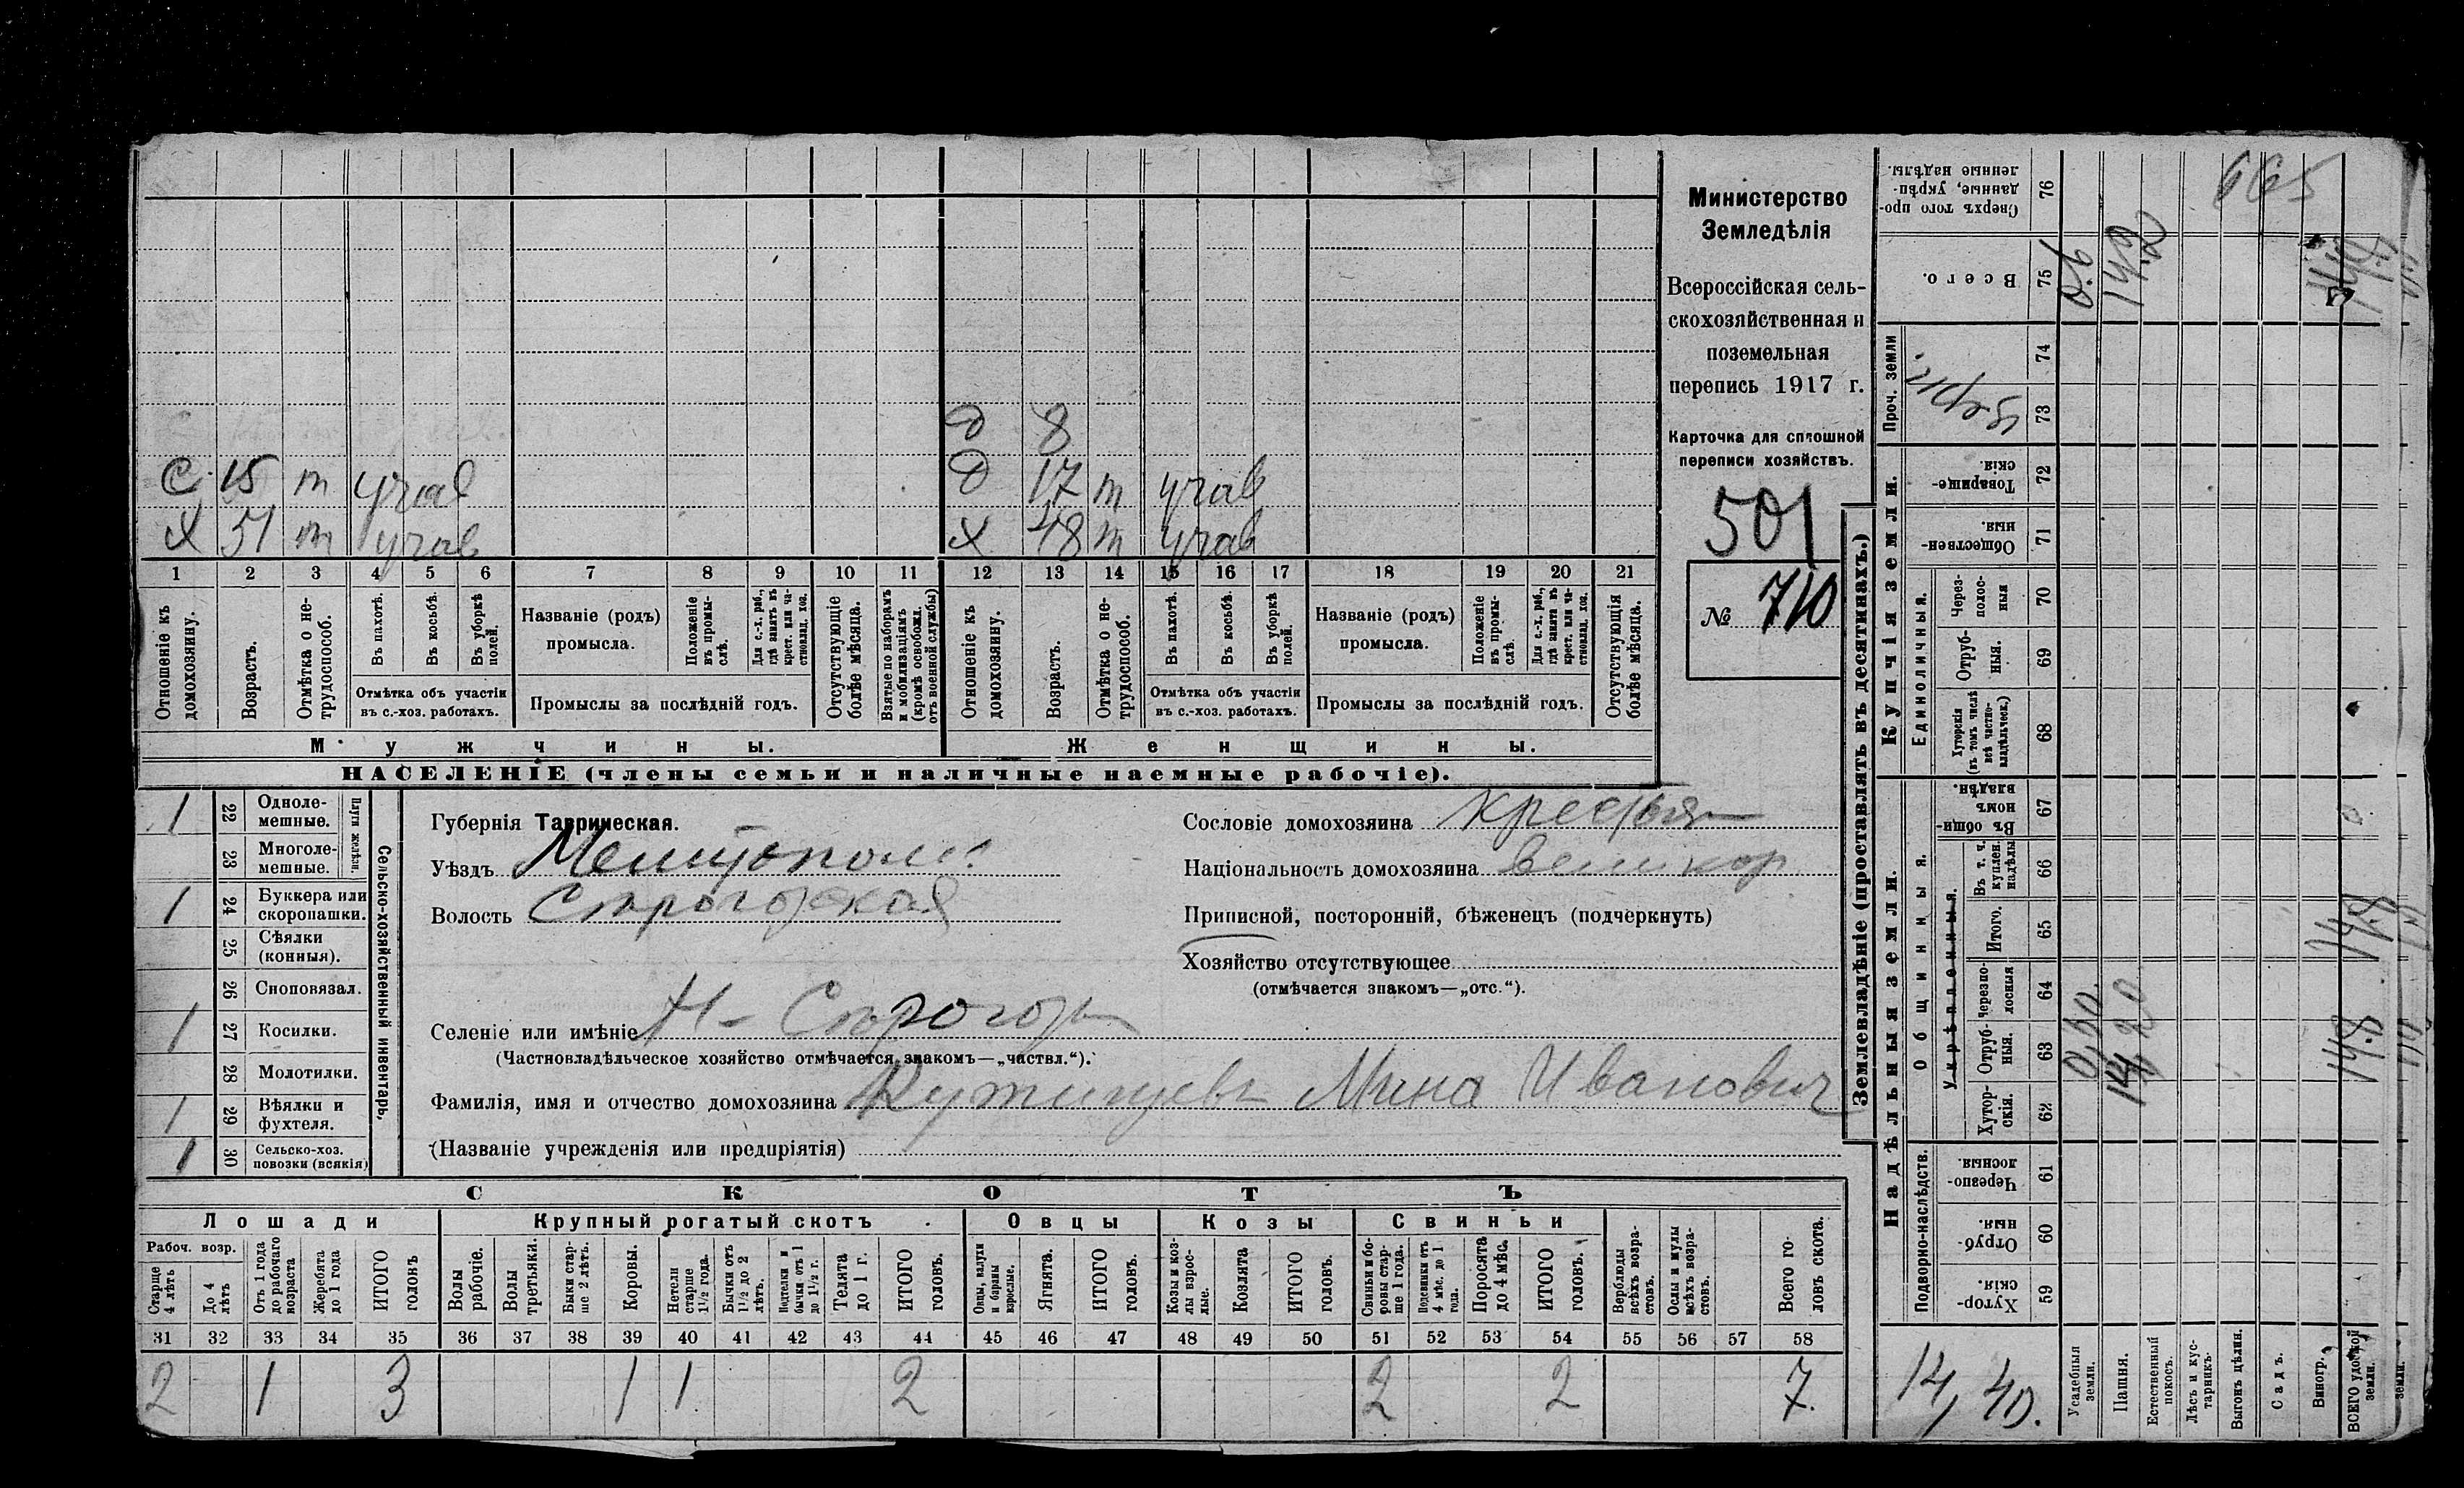 Министерство
Земледѣлія
Всероссійская сель-
скохозяйственная и
поземельная
перепись 1917 г.
Карточка для сплошной
переписи хозяйствъ.
501
№ 710
д 8
с 15 т учав д 17 т учав
х 51 т учав х 48 т учав
1 2 3 4 5 6 7 8 9 10 11 12 13 14 15 16 17 18 19 20 21
Отношеніе къ домохозяину.
Возрасть.
Отмѣтка о не-трудоспособ.
Въ пахотѣ.
Въ косьбѣ.
Въ уборкѣ полей.
Отмѣтка объ участіи
въ с.-хоз. работахъ.
Названіе (родъ)
промысла.
Положеніе въ промы-слѣ.
Для с.-х. раб., гдѣ занятъ въ крест. или ча-стновлад. хоз.
Промыслы за послѣдній годъ.
Отсутствующіе болѣе мѣсяца.
Взятые по наборамъ и мобилизаціямъ (кромѣ освобожд. отъ военной службы)
Отношеніе къ домохозяину.
Возрастъ.
Отмѣтка о не-трудоспособ.
Въ пахотѣ.
Въ косьбѣ.
Въ уборкѣ полей.
Отмѣтка объ участіи
въ с.-хоз. работахъ.
Названіе (родъ)
промысла.
Положеніе въ промы-слѣ.
Для с.-х. раб., гдѣ занята въ крест. или ча-стновлад. хоз.
Промыслы за послѣдній годъ.
Отсутствующія болѣе мѣсяца.
Мужчины. Женщины.
НАСЕЛЕНІЕ (члены семьи и наличные наемные рабочіе).
Сельско-хозяйственный инвентарь.
Плуги желѣзн.
1 22 Одноле-мешные.
23 Многоле-мешные.
1 24 Буккера или скоропашки.
25 Сѣялки (конныя).
26 Сноповязал.
1 27 Косилки.
28 Молотилки.
1 29 Вѣялки и фухтеля.
1 30 Сельско-хоз. повозки (всякія)
Губернія Таврическая.
Уѣздъ Мелитопол.
Волость Строгозская
Селеніе или имѣніе Н-Строгозы
(Частновладѣльческое хозяйство отмѣчается знакомъ—„частвл.“).
Фамилія, имя и отчество домохозяина Мина Иванович
(Названіе учрежденія или предпріятія)
Сословіе домохозяина крестьян
Національность домохозяина великор.
Приписной, посторонній, бѣженецъ (подчеркнуть)
Хозяйство отсутствующее
(отмѣчается знакомъ—„отс.“).
СКОТЪ
Лошади Крупный рогатый скотъ Овцы Козы Свиньи
Рабоч. возр.
Старше 4 лѣтъ
До 4 лѣтъ
Отъ 1 года до рабочаго возраста
Жеребята до 1 года
ИТОГО головъ
Волы рабочіе.
Волы третьяки.
Быки стар-ше 2 лѣтъ.
Коровы.
Нетели старше 1½ года.
Бычки отъ 1½ до 2 лѣтъ.
Подтелки и бычки отъ 1 до 1½ г.
Телята до 1 г.
ИТОГО головъ.
Овцы, валухи и бараны взрослые.
Ягнята.
ИТОГО головъ.
Козы и коз-лы взрос-лые.
Козлята
ИТОГО головъ.
Свиньи и бо-ровы стар-ше 1 года.
Подсвинки отъ 4 мѣс. до 1 года.
Поросята до 4 мѣс.
ИТОГО головъ.
Верблюды всѣхъ возра-стовъ.
Ослы и мулы всѣхъ возра-стовъ.
Всего го-ловъ скота.
31 32 33 34 35 36 37 38 39 40 41 42 43 44 45 46 47 48 49 50 51 52 53 54 55 56 57 58
2 1 3 1 1 2 2 2 7.
Землевладѣніе (проставлять въ десятинахъ.)
Надѣльныя земли. Купчія земли. Проч. земли
Подворно-наслѣдств.
Общинныя.
Укрѣпленныя.
Единоличныя.
59 Хутор-скія.
60 Отруб-ныя.
61 Черезпо-лосныя.
62 Хутор-скія.
63 Отруб-ныя.
64 Черезпо-лосныя
65 Итого.
66 Въ т. ч. куплен. надѣлы
67 Въ общин-номъ владѣн.
68 Хуторскія (въ томъ числѣ всѣ частно-владѣльческ.)
69 Отруб-ныя.
70 Через-полос-ныя
71 Обществен-ныя.
72 Товарище-скія.
73
74
75 Всего.
76 Сверхъ того про-данные, укрѣп-ленные надѣлы.
14,40.
Усадебныя земли.
Пашня.
Естественный покосъ.
Лѣсъ и кус-тарникъ.
Выгонъ цѣлин.
Садъ.
Виногр.
ВСЕГО удобной земли.
земли.
0.6
14.2
665
14.8